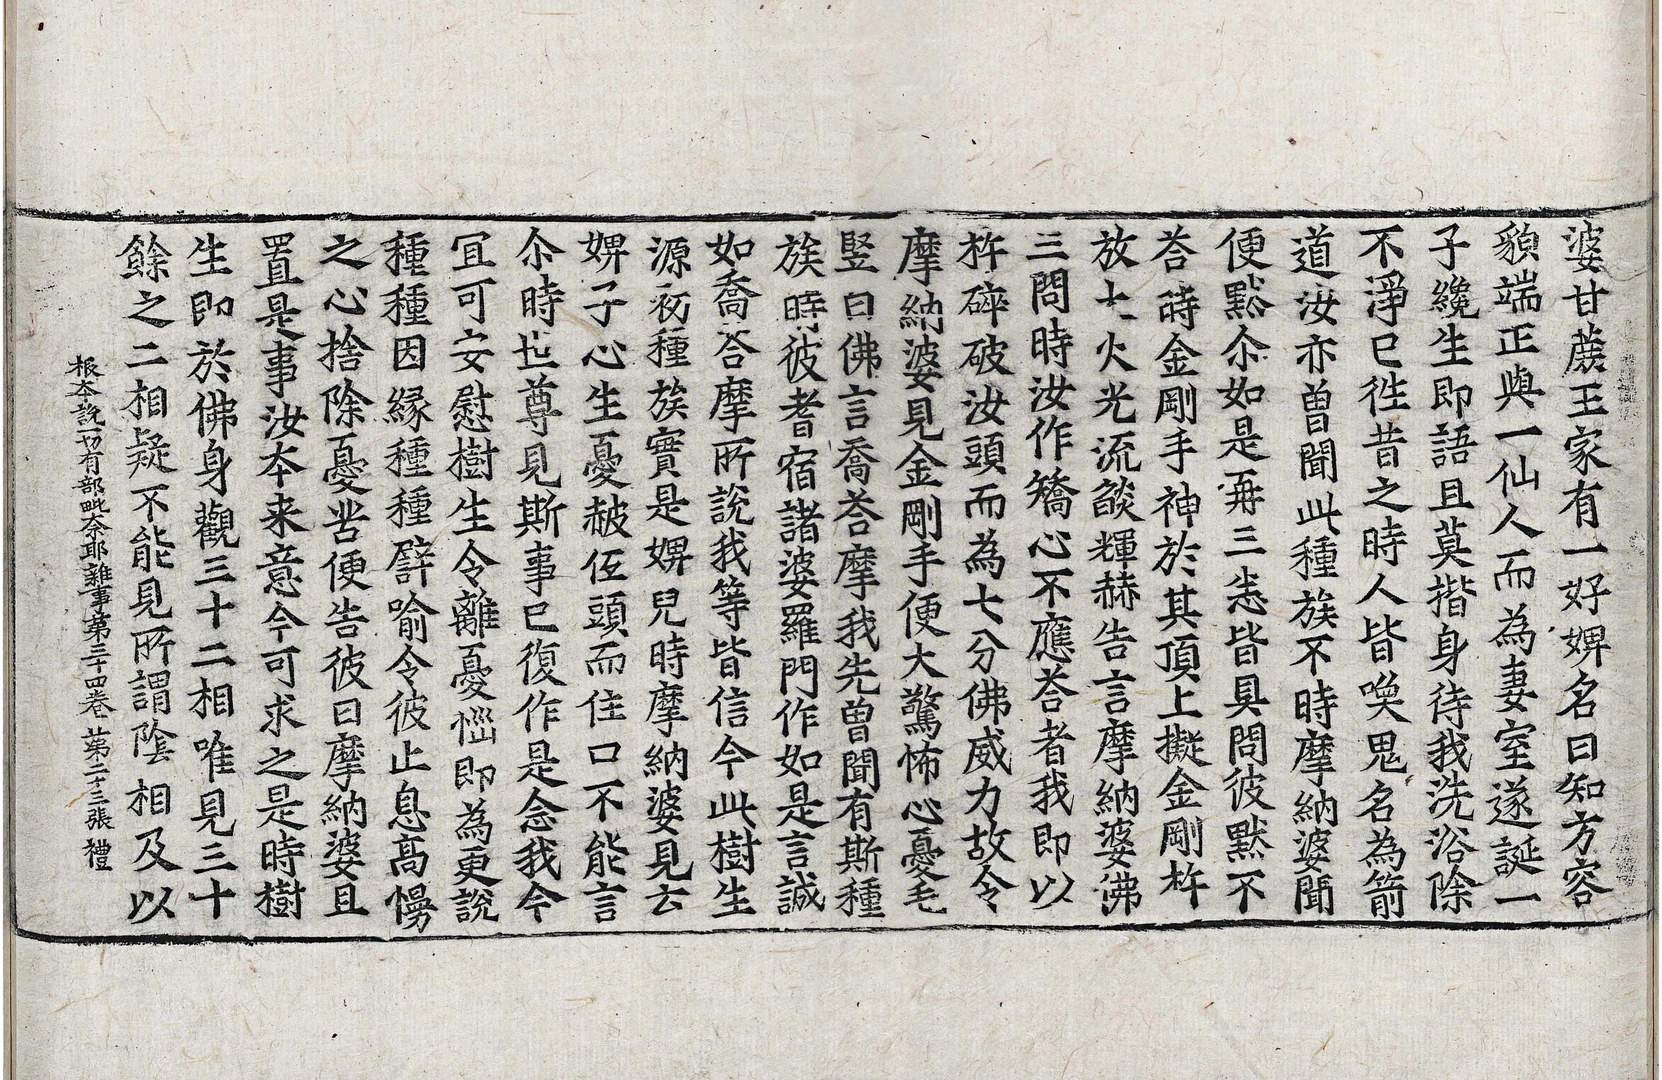 婆甘蔗王家有一好婢名曰知方容
貌端正與一仙人而為妻室遂誕一
子纔生即語且莫揩身待我洗浴除
不淨已徃昔之時人皆喚鬼名為箭
道汝亦曽聞此種族不時摩納婆聞
便黙尒如是再三恙皆具問彼黙不
荅時金剛手神於其頂上擬金剛杵
放大火光流㷔輝赫告言摩納婆佛
三問時汝作矯心不應荅者我即以
杵碎破汝頭而為七分佛威力故令
摩納婆見金剛手便大驚怖心憂毛
竪曰佛言喬荅摩我先曽聞有斯種
族時彼耆宿諸婆羅門作如是言誠
如喬荅摩所說我等皆信今此樹生
源初種族實是婢兒時摩納婆見云
婢子心生憂赧低頭而住口不能言
尒時世尊見斯事已復作是念我今
宜可安慰樹生令離憂惱即為更說
種種因縁種種譬喻令彼止息高慢
之心捨除憂苦便告彼曰摩納婆且
置是事汝夲来意今可求之是時樹
生即於佛身觀三十二相唯見三十
餘之二相疑不能見所謂陰相及以
根夲說一切有部毗奈耶雜事第三十四卷 第二十三張 禮